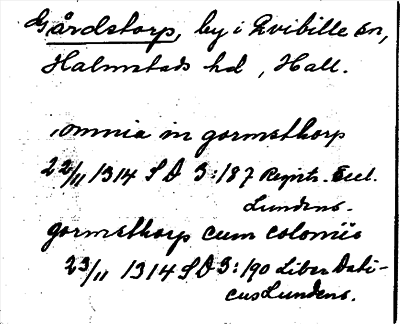 Gårdstorp, by i Kvibille sn,
Halmstads hd, Hall.
omnia in gormsthorp
22/11 1314 SD 3:187 Registr. Eccl.
Lundens.
gormsthorp cum coloniis
23/11 1314 SD 3:190 Liber Dati-
cus Lundens.